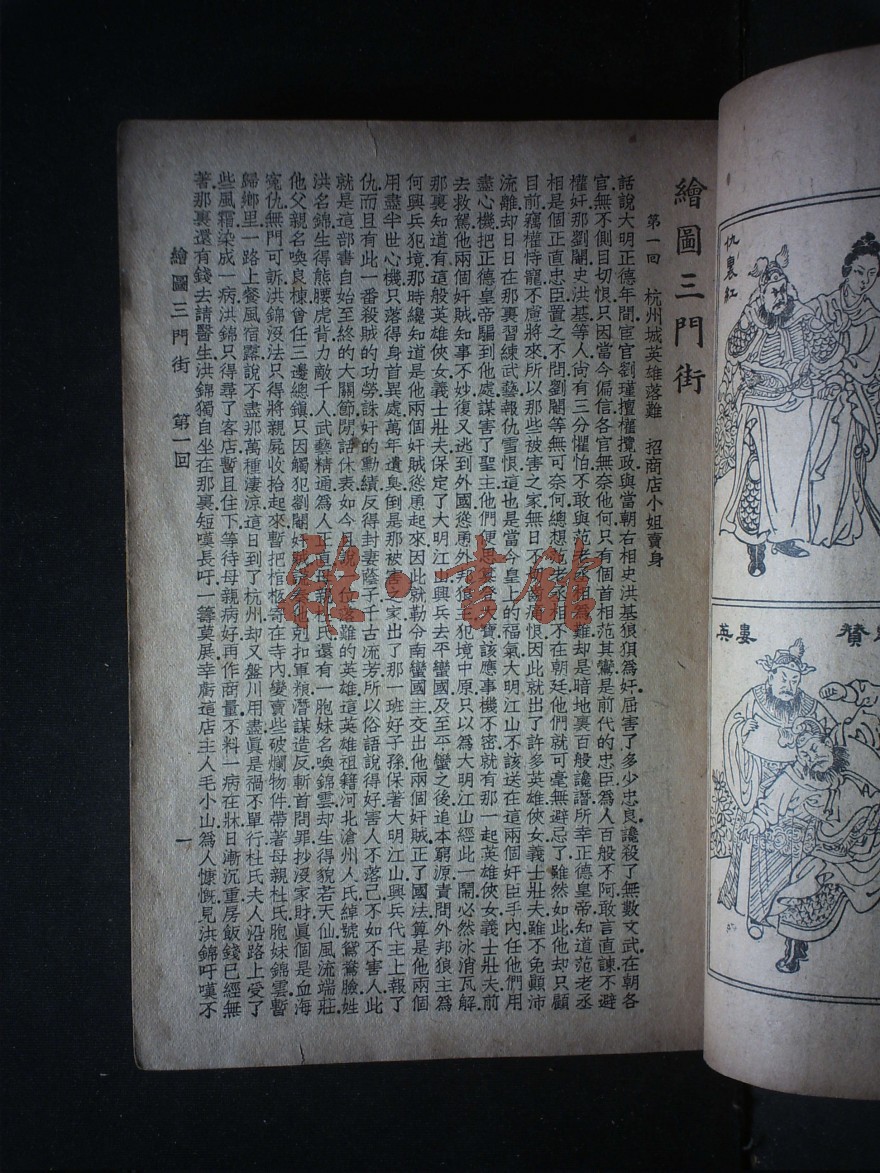 繪圖三門街
第一回 杭州城英雄落難 招商店小姐賣身
話說大明正德年間宦官劉瑾擅權攬政與當朝右相史洪基狼狽爲奸屈害了多少忠良讒殺了無數文武在朝各
官無不側目切恨只因當今偏信各官無奈他何只有個首相范其鸞是前代的忠臣爲人百般不阿敢言直諫不避
權奸那劉閹史洪基等人尙有三分懼怕不敢與范老丞相爲難却是暗地裏百般讒譖所幸正德皇帝知道范老丞
相是個正直忠臣置之不問劉閹等無可奈何總想范老丞相不在朝廷他們就可毫無避忌了雖然如此他却只顧
目前竊權恃寵不慮將來所以那些被害之家無日不 痛恨因此就出了許多英雄俠女義士壯夫雖不免顚沛
流離却日日在那裏習練武藝報仇雪恨這也是當今皇上的福氣大明江山不該送在這兩個奸臣手內任他們用
盡心機把正德皇帝騙到他處謀害了聖主他們便思 大寶該應事機不密就有那一起英雄俠女義士壯夫前
去救駕他兩個奸賊知事不妙復又逃到外國慫恿外邦狼 犯境中原只以為大明江山經此一鬧必然冰消瓦解
那裏知道有這般英雄俠女義士壯夫保定了大明江山興兵去平蠻國及至平蠻之後追本窮源責問外邦狼主爲
何興兵犯境那時纔知道是他兩個奸賊慫恿起來因此就勒令南蠻國主交出他兩個奸賊正了國法算是他兩個
用盡半世心機只落得身首異處萬年遺臭倒是那被害 家出了那一班好子孫保著大明江山興兵代主上報了
仇而且有此一番殺賊的功勞誅奸的勳績反得封妻蔭子千古流芳所以俗語說得好害人不落己不如不害人此
就是這部書自始至終的大關節閒話休表如今 說一位落難的英雄這英雄祖籍河北滄州人氏綽號鴛鴦臉姓
洪名錦生得熊腰虎背力敵千人武藝精通爲人正直母親杜氏還有一胞妹名喚錦雲却生得貌若天仙風流端莊
他父親名喚良棟曾任三邊總鎭只因觸犯劉閹奸賊 奏他剋扣軍糧潛謀造反斬首問罪抄沒家財眞個是血海
寃仇無門可訴洪錦沒法只得將親屍收拾起來暫把棺柩寄在寺內變賣些破爛物件帶著母親杜氏胞妹錦雲暫
歸鄉里一路上餐風宿露說不盡那萬種淒涼這日到了杭州却又盤川用盡眞是禍不單行杜氏夫人沿路上受了
些風霜染成一病洪錦只得尋了客店暫且住下等待母親病好再作商量不料一病在牀日漸沉重房飯錢已經無
著那裏還有錢去請醫生洪錦獨自坐在那裏短嘆長吁一籌莫展幸虧這店主人毛小山爲人慷慨見洪錦吁嘆不
繪圖三門街 第一回
一
仇裏紅
婁英
贊
雜·書館